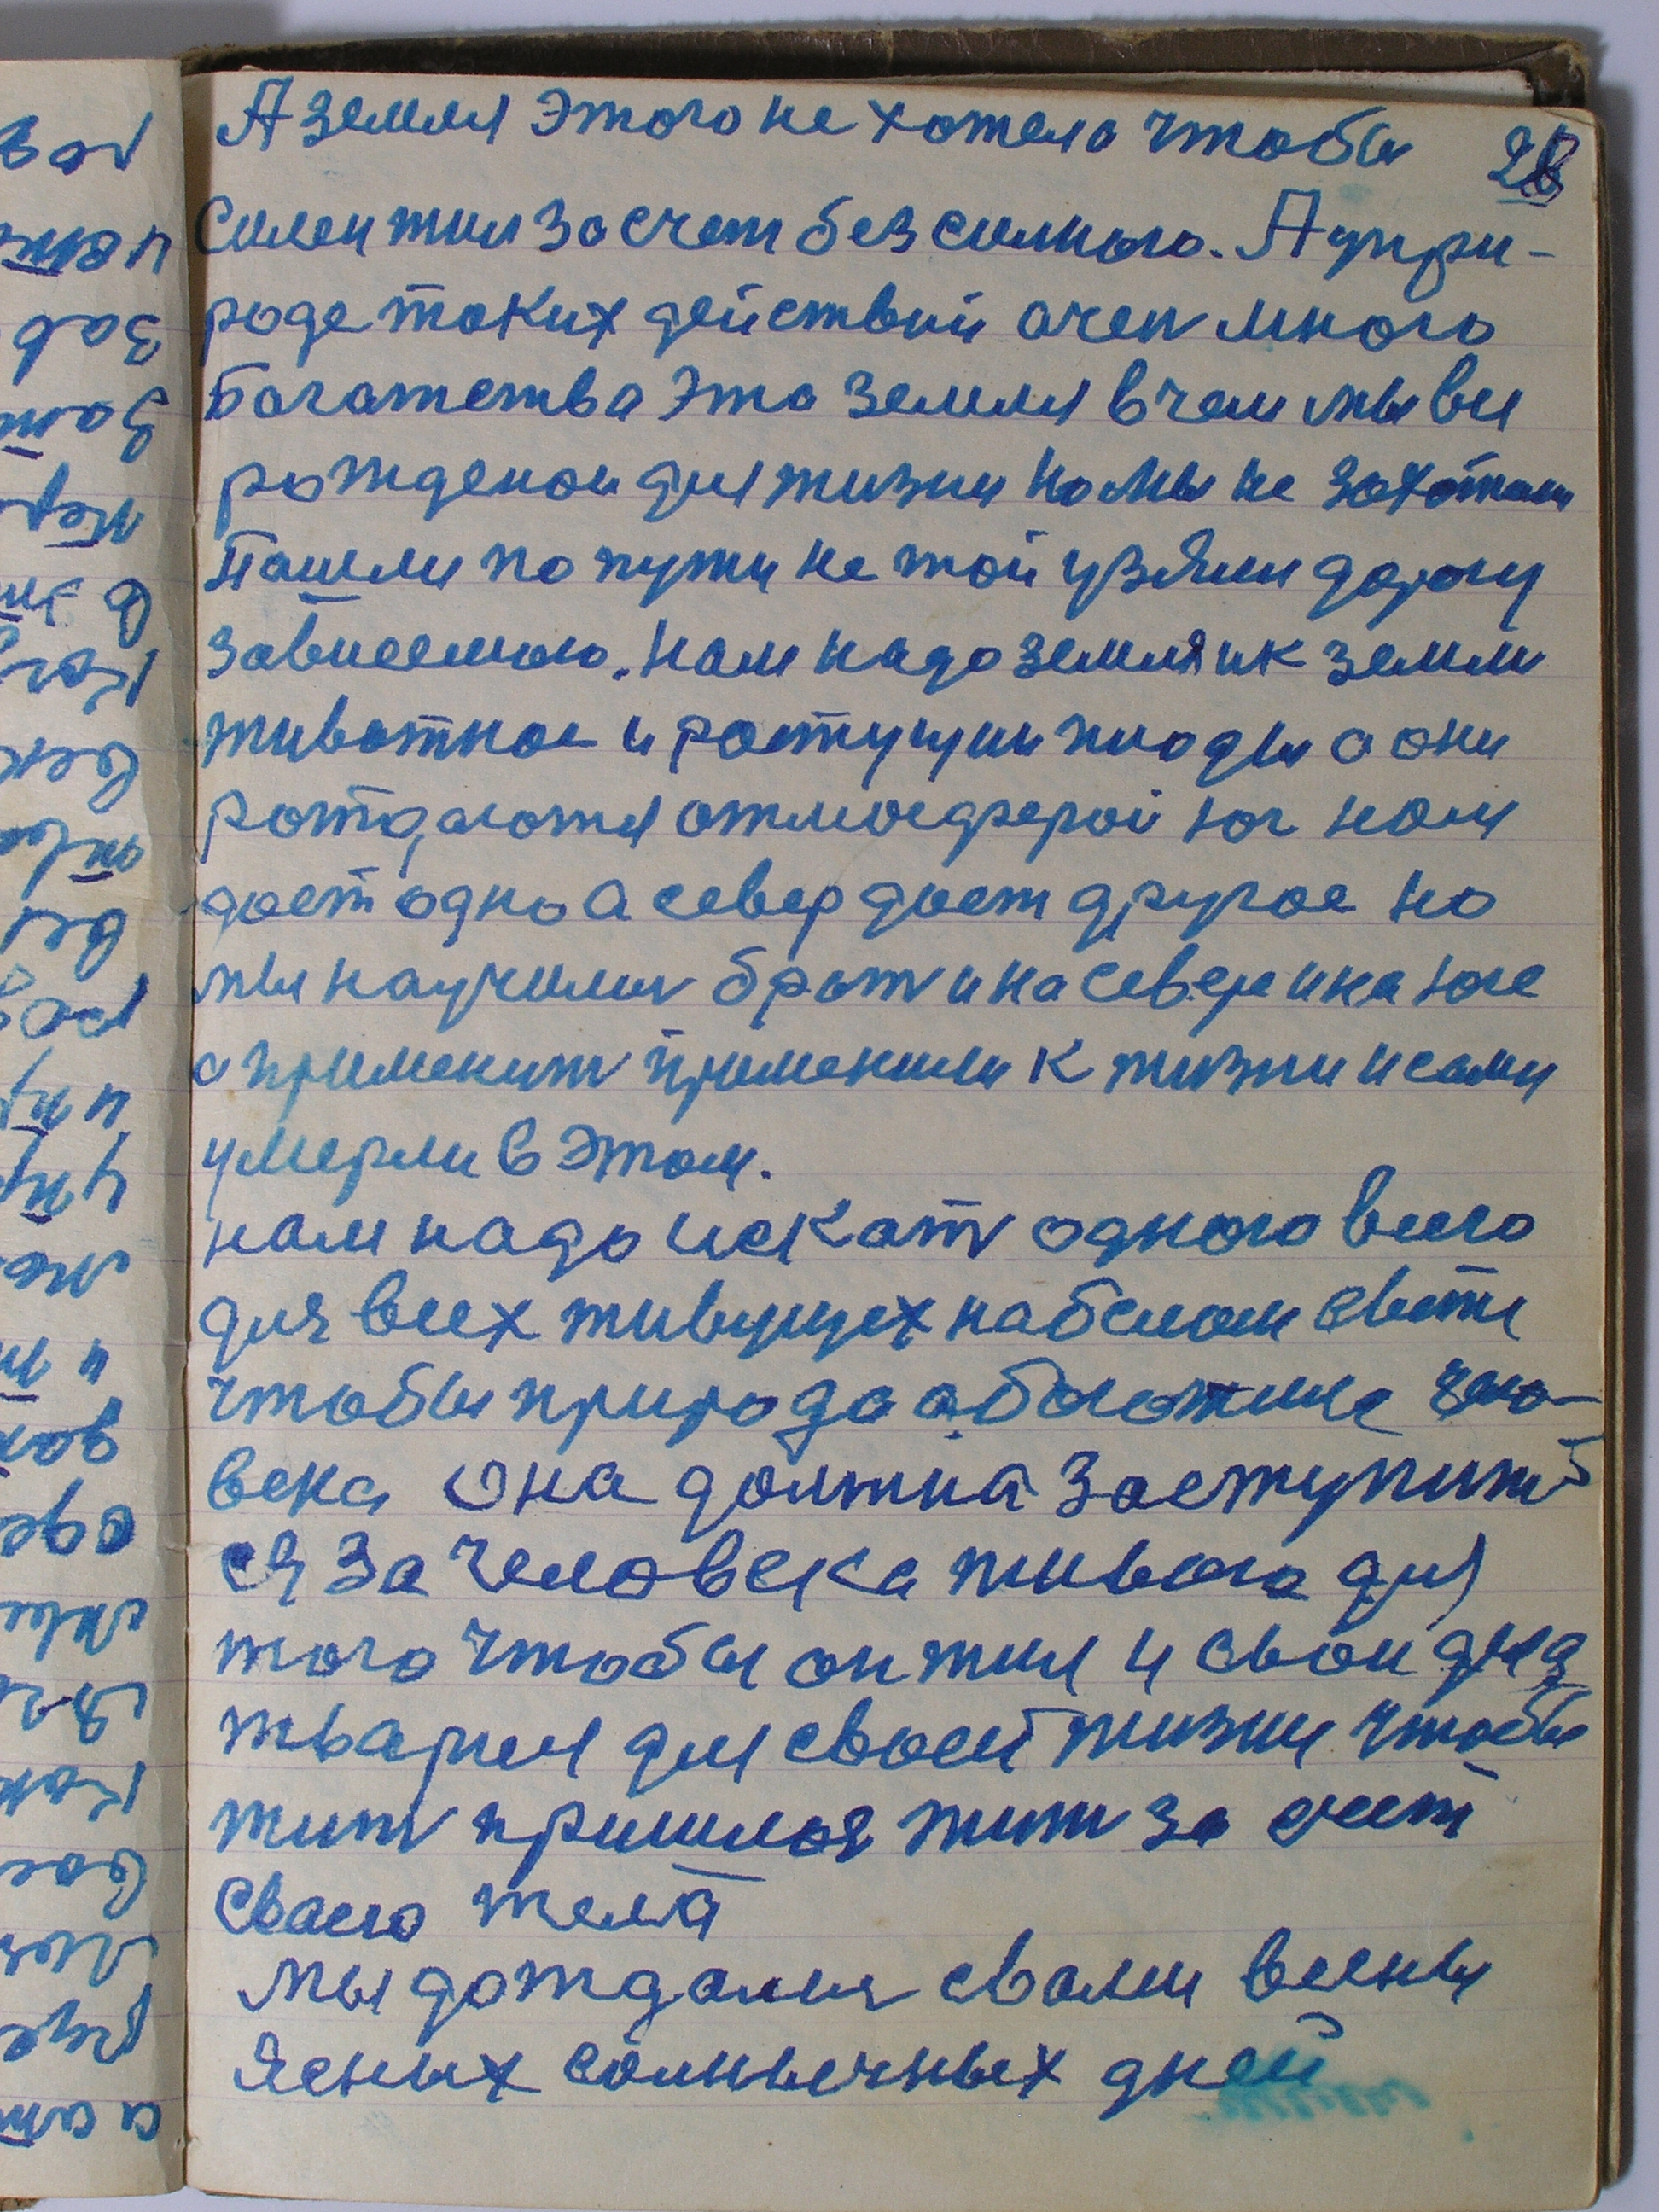 А земля этого не хотела чтобы 28
Силен жил за счет безсилного. А у при-
роде таких действий очен много
Богатетва это земля в чем мы вси
рождением для жизни но мы не захотели
Пашли по пути не той узяли дорогу
зависемою. Нам надо земля и к земли
животное и ростущии плоды а они
рождаются атмосферой юг нам
дает одно а север дает другое но
мы научилис брать и на севере и на юге
а применит применили к жизни и сами
умерли в этом.
нам надо искат одного всего
для всех живущех на белом свети
чтобы природа
века она должна заступит
ся за человека живого для
того чтобы он жил и свои дела
тварил для своей жизни чтобы
жит пришлося жит за счет
сваего тела
мы дождалис свами весны
ясных солнычных дней